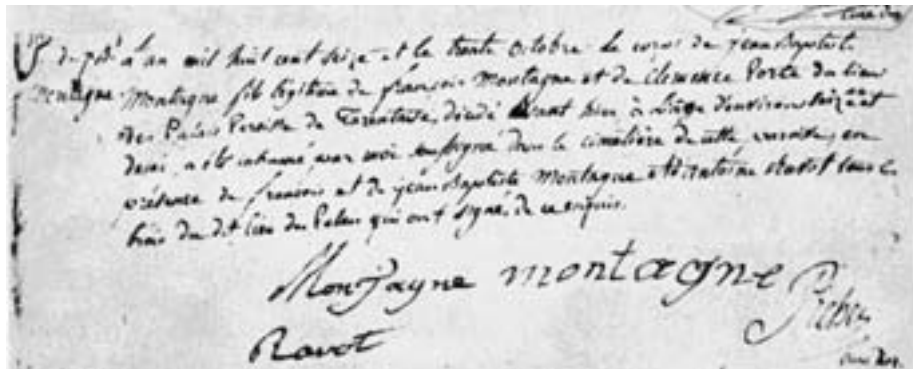 L'an mil huit cent seize et le trente octobre le corps de jean Baptiste
montagne Montagne fils légitime de françois Montagne et de Clemence Porte du lieu
des Palais Paroisse de Tarentaise, décédé avant hier, à l'âge d'environ seize et
demi, a été inhumé par moi soussigné dans le cimetière de cette paroisse, en
présence de francois et de jean Baptiste Montagne et d'antoine
du dit lieu des qui ont signé de ce enquis.
Montagne montagne
Ravot